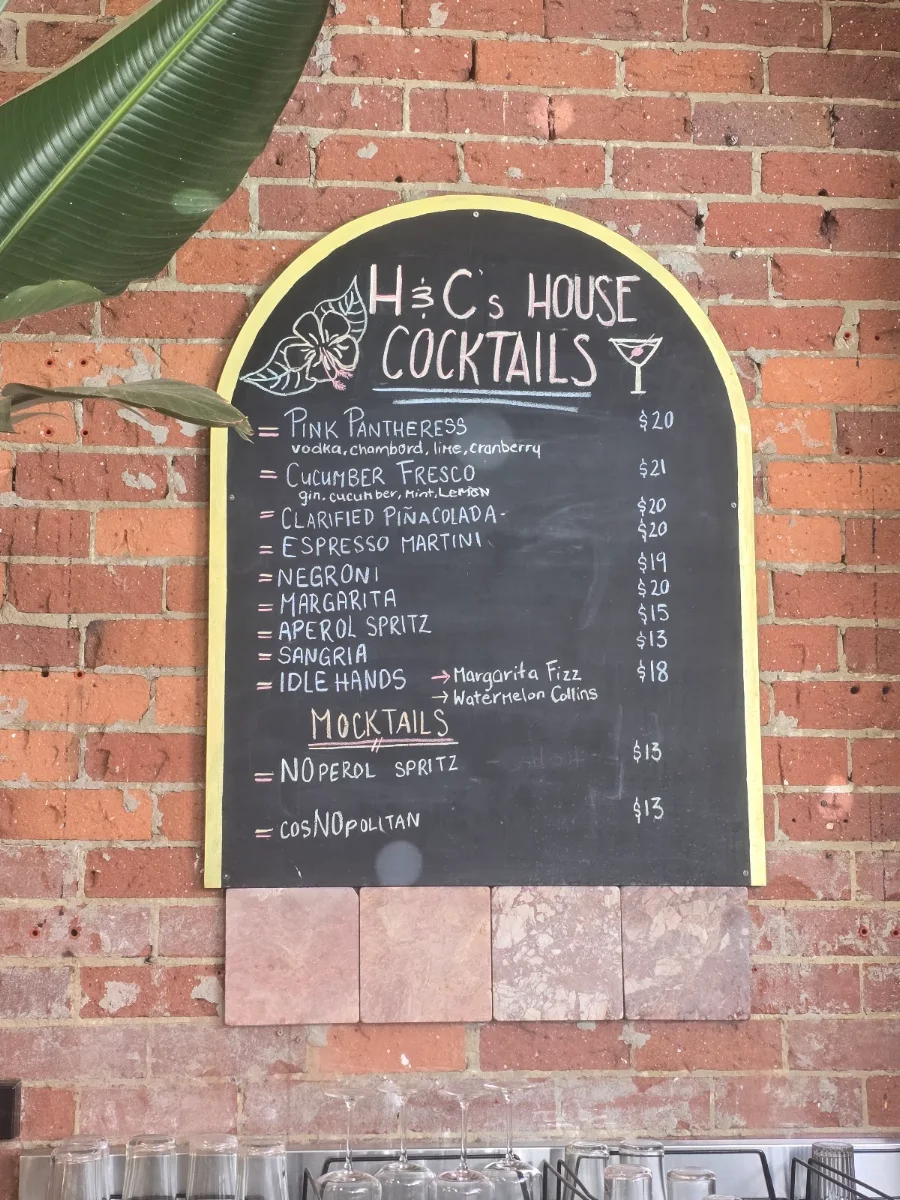 H & C's HOUSE
COCKTAILS
= PINK PANTHERESS $20
vodka, chambord, lime, cranberry
= CUCUMBER FRESCO $21
gin, cucumber, Mint, LeMoN
= CLARIFIED PIÑACOLADA- $20
= ESPRESSO MARTINI $20
= NEGRONI $19
= MARGARITA $20
= APEROL SPRITZ $15
= SANGRIA $13
= IDLE HANDS → Margarita Fizz $18
→ Watermelon Collins
MOCKTAILS
= NOPEROL SPRITZ $13
= cosNOpolitan $13